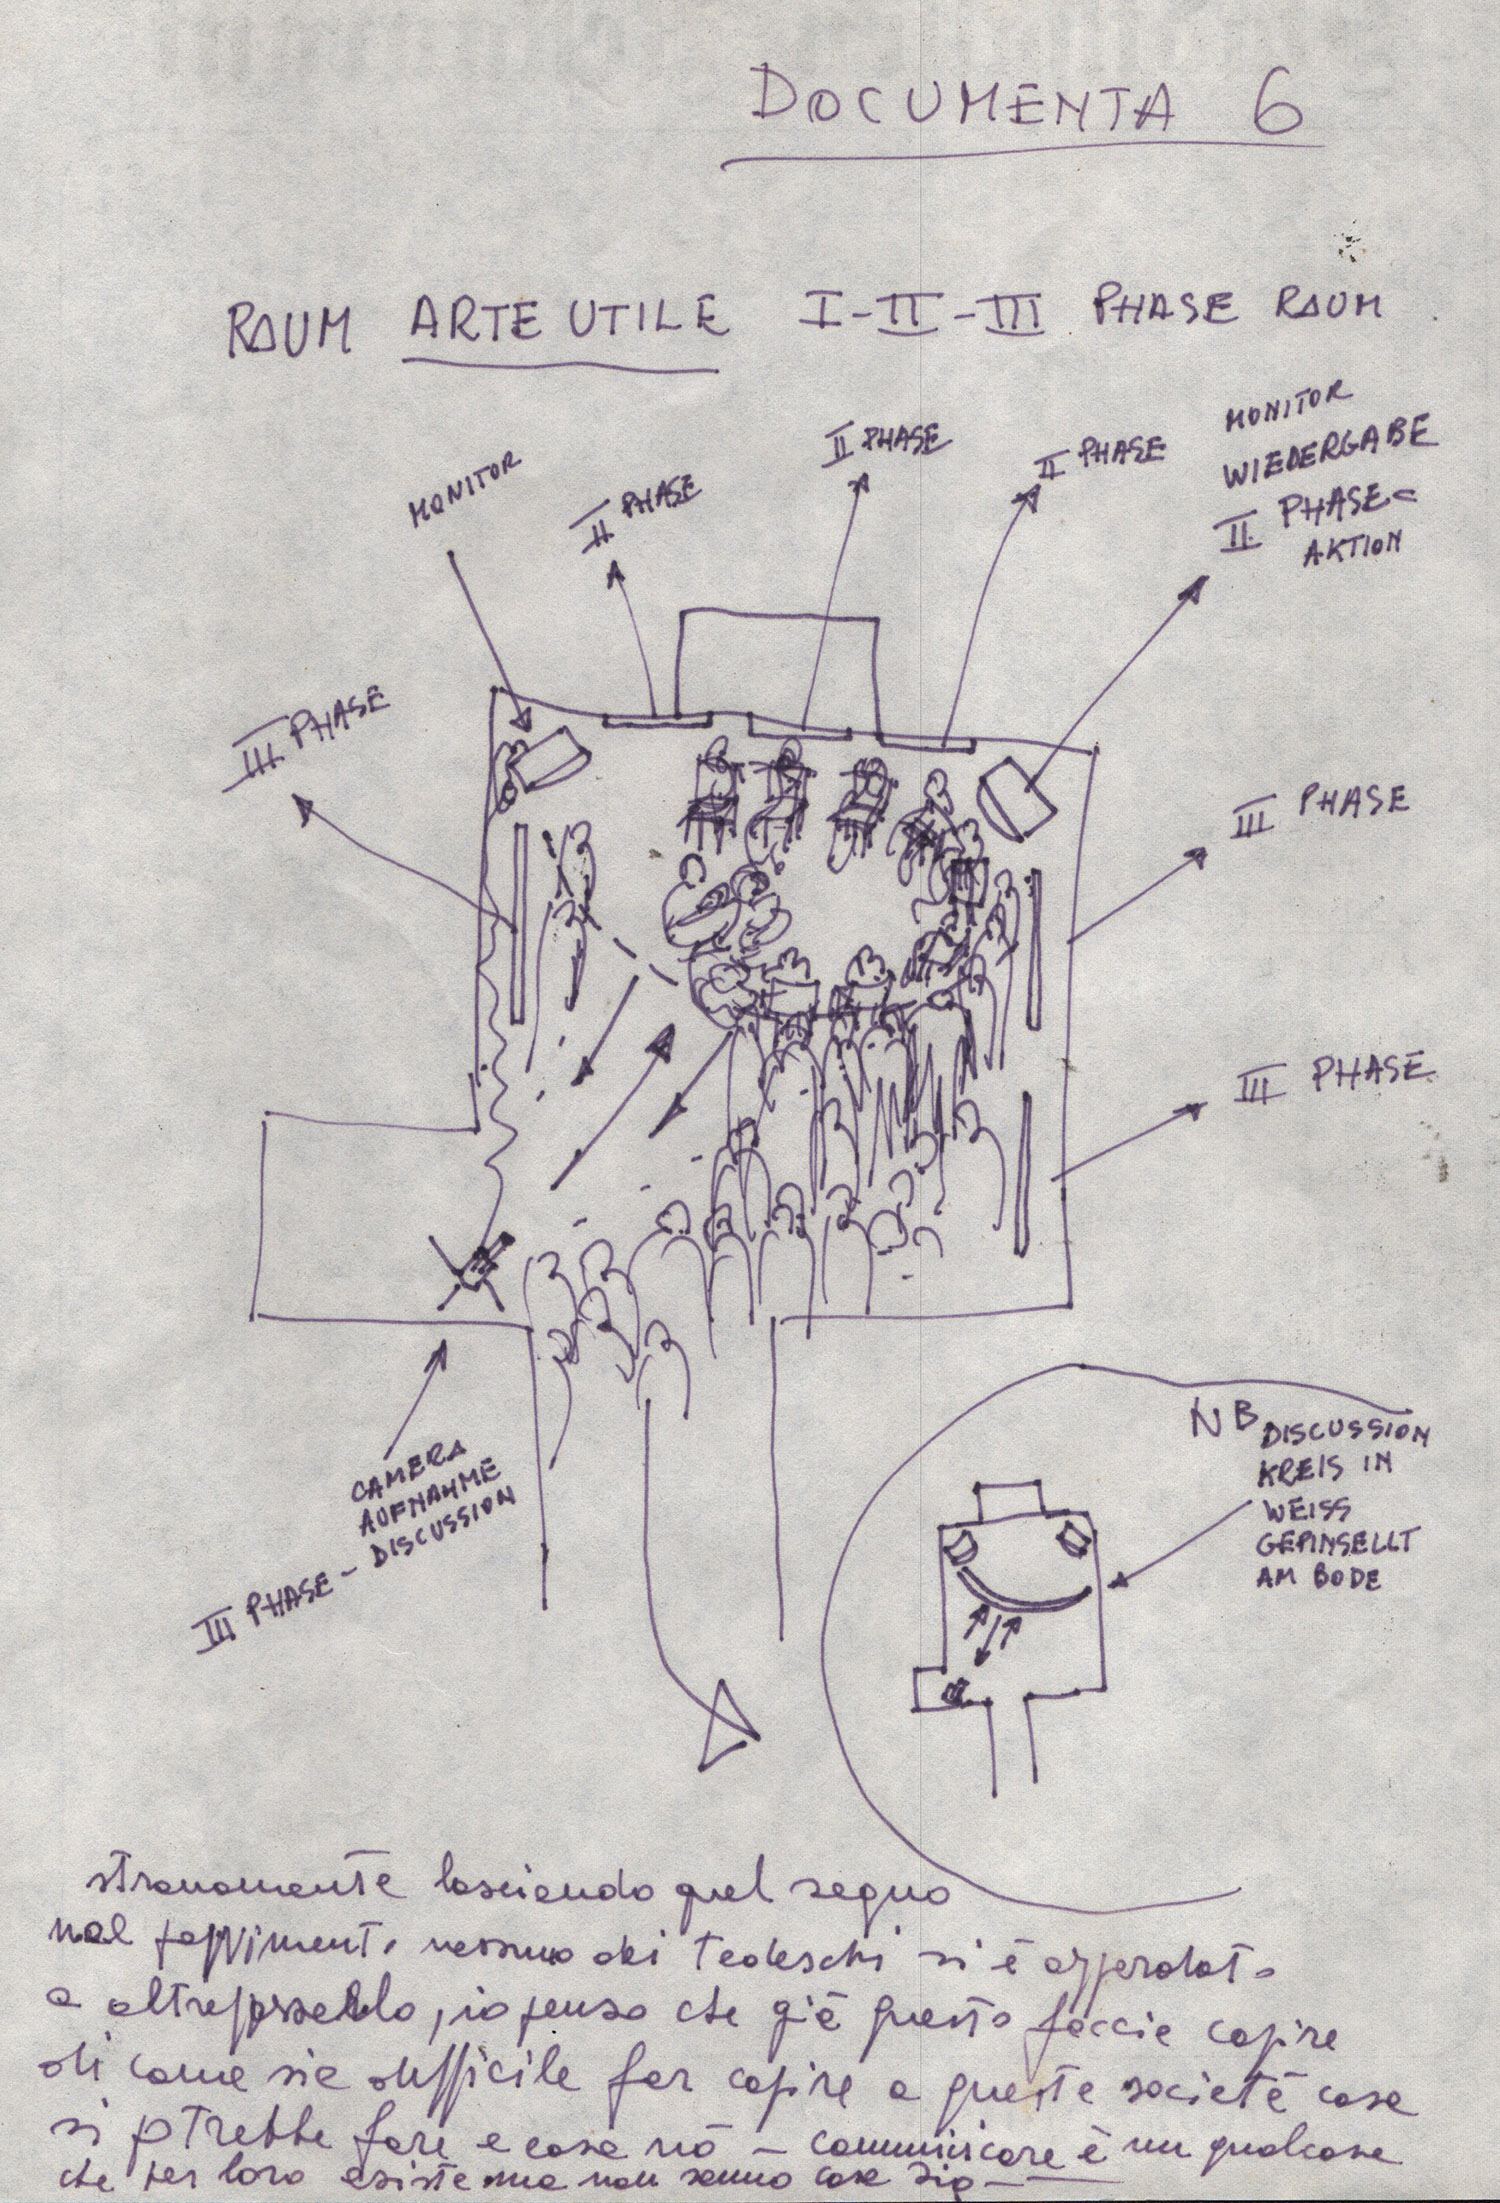 DOCUMENTA 6
RAUM ARTE UTILE I-II-III PHASE RAUM
MONITOR
II PHASE
II PHASE
II PHASE
MONITOR
WIEDERGABE
II PHASE=
AKTION
III PHASE
III PHASE
III PHASE
CAMERA
AUFNAHME
III PHASE - DISCUSSION
NB DISCUSSION
KREIS IN
WEISS
GEPINSELLT
AM BODE
stranamente lasciando quel segno
nel pavimento nessuno dei tedeschi si è
a oltrepassarlo, io penso che già questo faccia capire
di come sia difficile far capire a queste società cosa
si potrebbe fare e cosa nò - communicare è un qualcosa
che per loro esiste ma non sanno cosa sia -